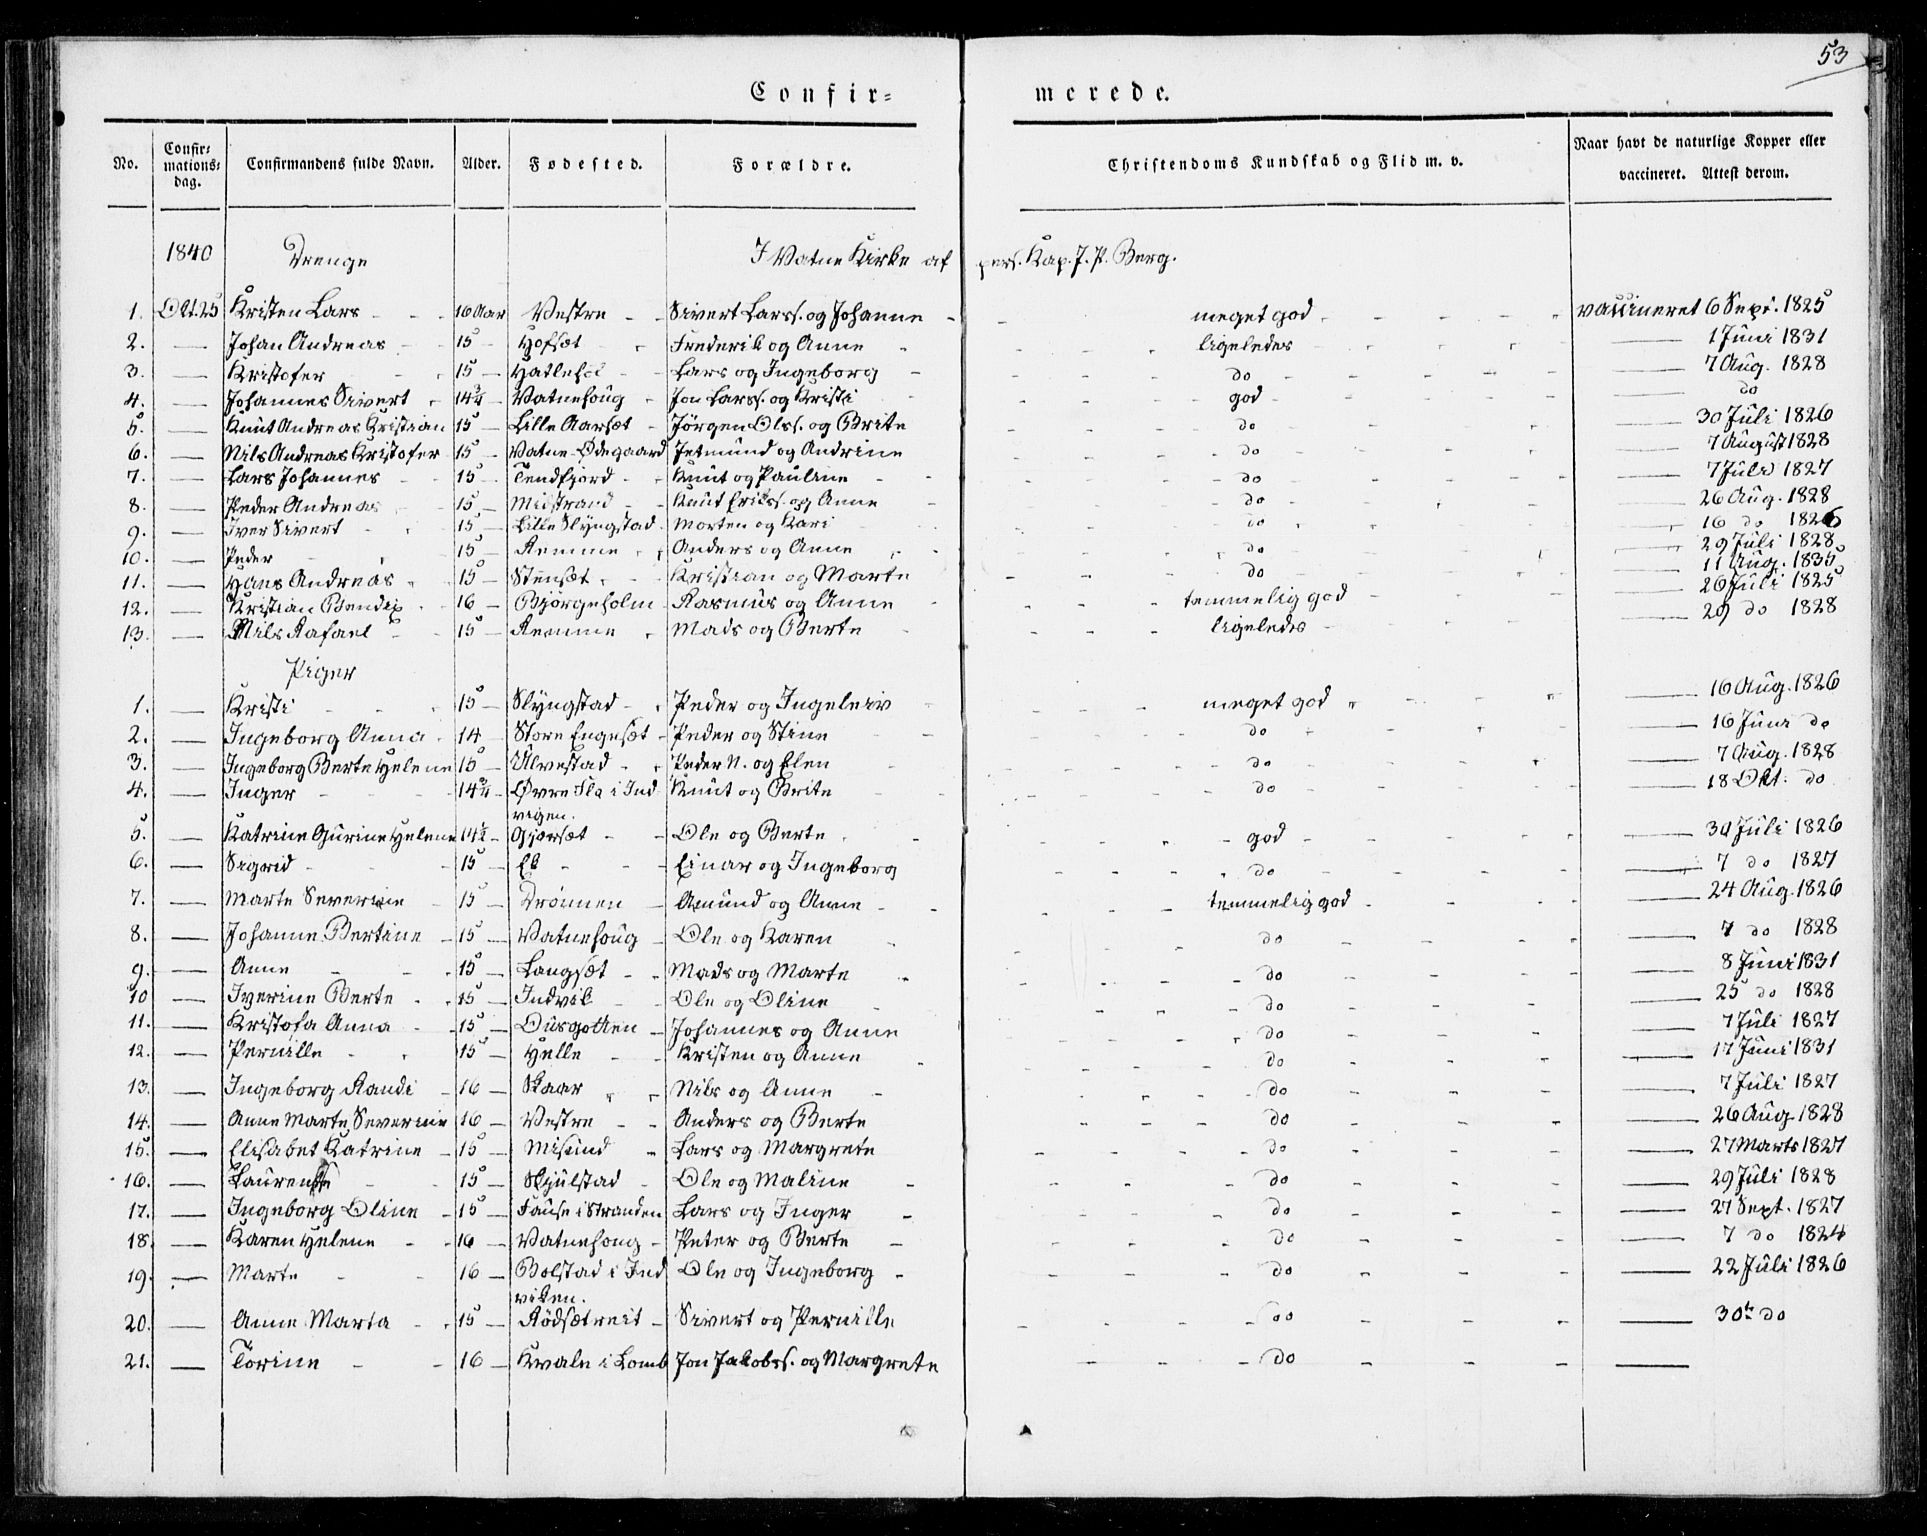 53
Confir= merede.
No. Confir=mations=dag. Confirmandens fulde Navn. Alder. Fødested. Forældre. Christendoms Kundskab og Flid m. v. Naar havt de naturlige Kopper eller vaccineret. Attest derom.
1840 Drenge I Vatne Kirke af pers. Kap. J. P. Berg.
1. Okt. 25 Kristen Lars 16 Aar Vestre Sivert Larss. og Johanne meget god vaccineret 6 Sept. 1825
2. — Johan Andreas 15 — Hofsæt Frederik og Anne ligeledes — 1 Juni 1831
3. — Kristofer 15 — Hatlehol Lars og Ingeborg do — 7 Aug. 1828
4. — Johannes Sivert 14¾ — Vatnehoug Jon Larss. og Kristi god — do
5. — Knut Andreas Kristian 15 — Lille Aarsæt Jörgen Olss. og Brite do — 30 Juli 1826
6. — Nils Andreas Kristofer 15 — Vatne-Ødegaard Jetmund og Andrine do — 7 August 1828
7. — Lars Johannes 15 — Tendfjord Knut og Pauline do — 7 Juli 1827
8. — Peder Andreas 15 — Midstrand Knut Erikss. og Anne do — 26 Aug. 1828
9. — Iver Sivert 15 — Lille Slyngstad Morten og Kari do — 16 do 1826
10. — Peder 15 — Remme Anders og Anne do — 29 Juli 1828
11. — Hans Andreas 15 — Stensæt Kristian og Marte do — 11 Aug. 1835
12. — Kristian Bendix 16 — Bjørgeholm Rasmus og Anne temmelig god — 26 Juli 1825
13. — Nils Rafael 15 — Remme Mads og Berte ligeledes — 29 do 1828
Piger
1. — Kristi 15 — Slyngstad Peder og Ingeleiv meget god — 16 Aug. 1826
2. — Ingeborg Anna 14 — Store Engesæt Peder og Stine do — 16 Juni do
3. — Ingeborg Berte Helene 15 — Ulvestad Peder N. og Elen do — 7 Aug. 1828
4. — Inger 14¾ — Øvre Flo i Ind Knut og Brite do — 18 Okt. do
vigen.
5. — Katrine Gurine Helene 14½ — Gjærsæt Ole og Berte god — 30 Juli 1826
6. — Sigrid 15 — Ek Einar og Ingeborg do — 7 do 1827
7. — Marte Severine 15 — Drønnen Amund og Anne temmelig god — 24 Aug. 1826
8. — Johanne Bertine 15 — Vatnehoug Ole og Karen do — 7 do 1828
9. — Anne 15 — Langsæt Mads og Marte do — 8 Juni 1831
10 — Iverine Berte 15 — Indvik Ole og Oline do — 25 do 1828
11. — Kristofa Anna 15 — Johannes og Anne do — 7 Juli 1827
12. — Pernille 15 — Helle Kristen og Anne do — 17 Juni 1831
13. — Ingeborg Randi 16 — Skaar Nils og Anne do — 7 Juli 1827
14. — Anne Marte Severine 16 — Vestre Anders og Berte do — 26 Aug. 1828
15. — Elisabet Katrine 15 — Misund Lars og Margrete do — 27 Marts 1827
16. — Laurense 15 — Skjulstad Ole og Maline do — 29 Juli 1828
17. — Ingeborg Oline 15 — Fause i Stranden Lars og Inger do — 27 Sept. 1827
18. — Karen Helene 16 — Vatnehoug Peter og Berte do — 7 do 1824
19. — Marte 16 — Bolstad i Ind Ole og Ingeborg do — 22 Juli 1826
viken.
20. — Anne Marta 15 — Rödsætreit Sivert og Pernille do — 30te do
21. — Torine 16 — Kvale i Lomb Jon Jakobss. og Margrete do —